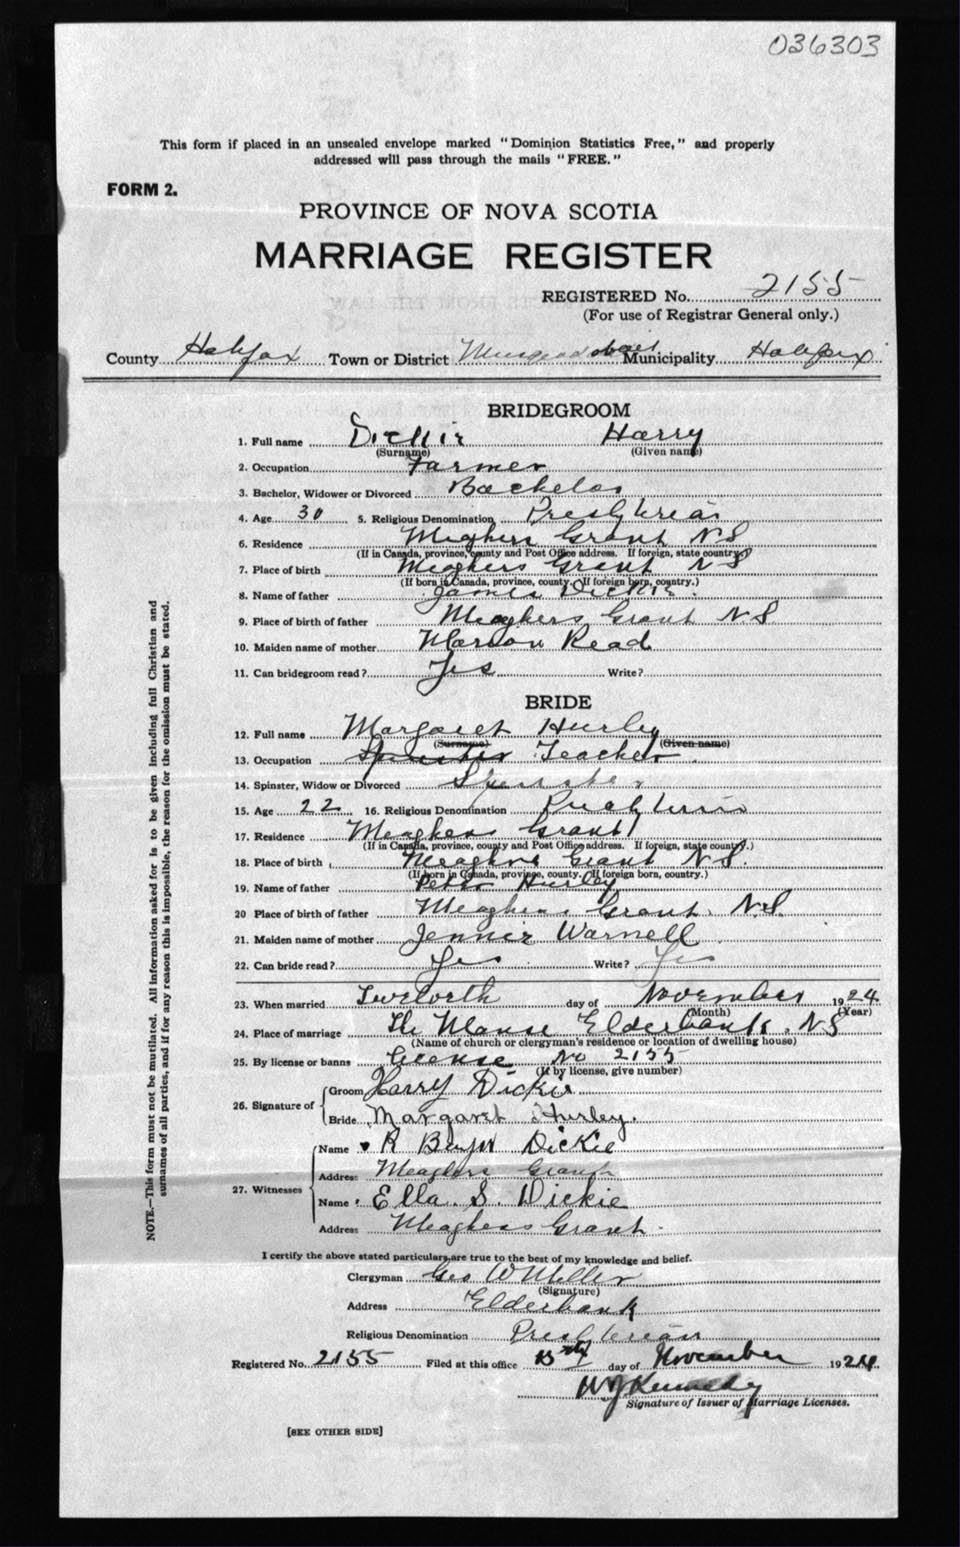 036303
This form if placed in an unsealed envelope marked "Dominion Statistics Free," and properly
addressed will pass through the mails "FREE."
FORM 2.
PROVINCE OF NOVA SCOTIA
MARRIAGE REGISTER
REGISTERED No. 2155
(For use of Registrar General only.)
County Halifax Town or District Municipality Halifax
BRIDEGROOM
1. Full name Dickie Harry
(Surname) (Given name)
2. Occupation Farmer
3. Bachelor, Widower or Divorced Bachelor
4. Age 30 5. Religious Denomination Presbyterian
6. Residence Meaghers Grant N S
(If in Canada, province, county and Post Office address. If foreign, state country.)
7. Place of birth Meaghers Grant N S
(If born in Canada, province, county. If foreign born, country.)
8. Name of father James Dickie.
9. Place of birth of father Meaghers Grant N.S.
10. Maiden name of mother Marion Read
11. Can bridegroom read? Yes Write?
BRIDE
12. Full name Margaret Hurley
(Surname) (Given name)
13. Occupation Spinster Teacher.
14. Spinster, Widow or Divorced Spinster
15. Age 22 16. Religious Denomination Presbyterian
17. Residence Meaghers Grant
(If in Canada, province, county and Post Office address. If foreign, state country.)
18. Place of birth Meaghers Grant N.S.
(If born in Canada, province, county. If foreign born, country.)
19. Name of father Peter Hurley
20 Place of birth of father Meaghers Grant. N.S.
21. Maiden name of mother Jennie Warnell
22. Can bride read? Yes Write? Yes
23. When married day of November 1924
(Month) (Year)
24. Place of marriage The Manse Elderbank. N S
(Name of church or clergyman's residence or location of dwelling house)
25. By license or banns License No 2155
(If by license, give number)
26. Signature of Groom Harry Dickie
Bride Margaret Hurley.
27. Witnesses Name R Dickie
Address Meaghers Grant
Name Ella. S. Dickie
Address Meaghers Grant.
I certify the above stated particulars are true to the best of my knowledge and belief.
Clergyman Geo W Miller
(Signature)
Address Elderbank
Religious Denomination Presbyterian
Registered No. 2155 Filed at this office day of November 1924
W J Kennedy
Signature of Issuer of Marriage Licenses.
[SEE OTHER SIDE]
NOTE.—This form must not be mutilated. All information asked for is to be given including full Christian and
surnames of all parties, and if for any reason this is impossible, the reason for the omission must be stated.